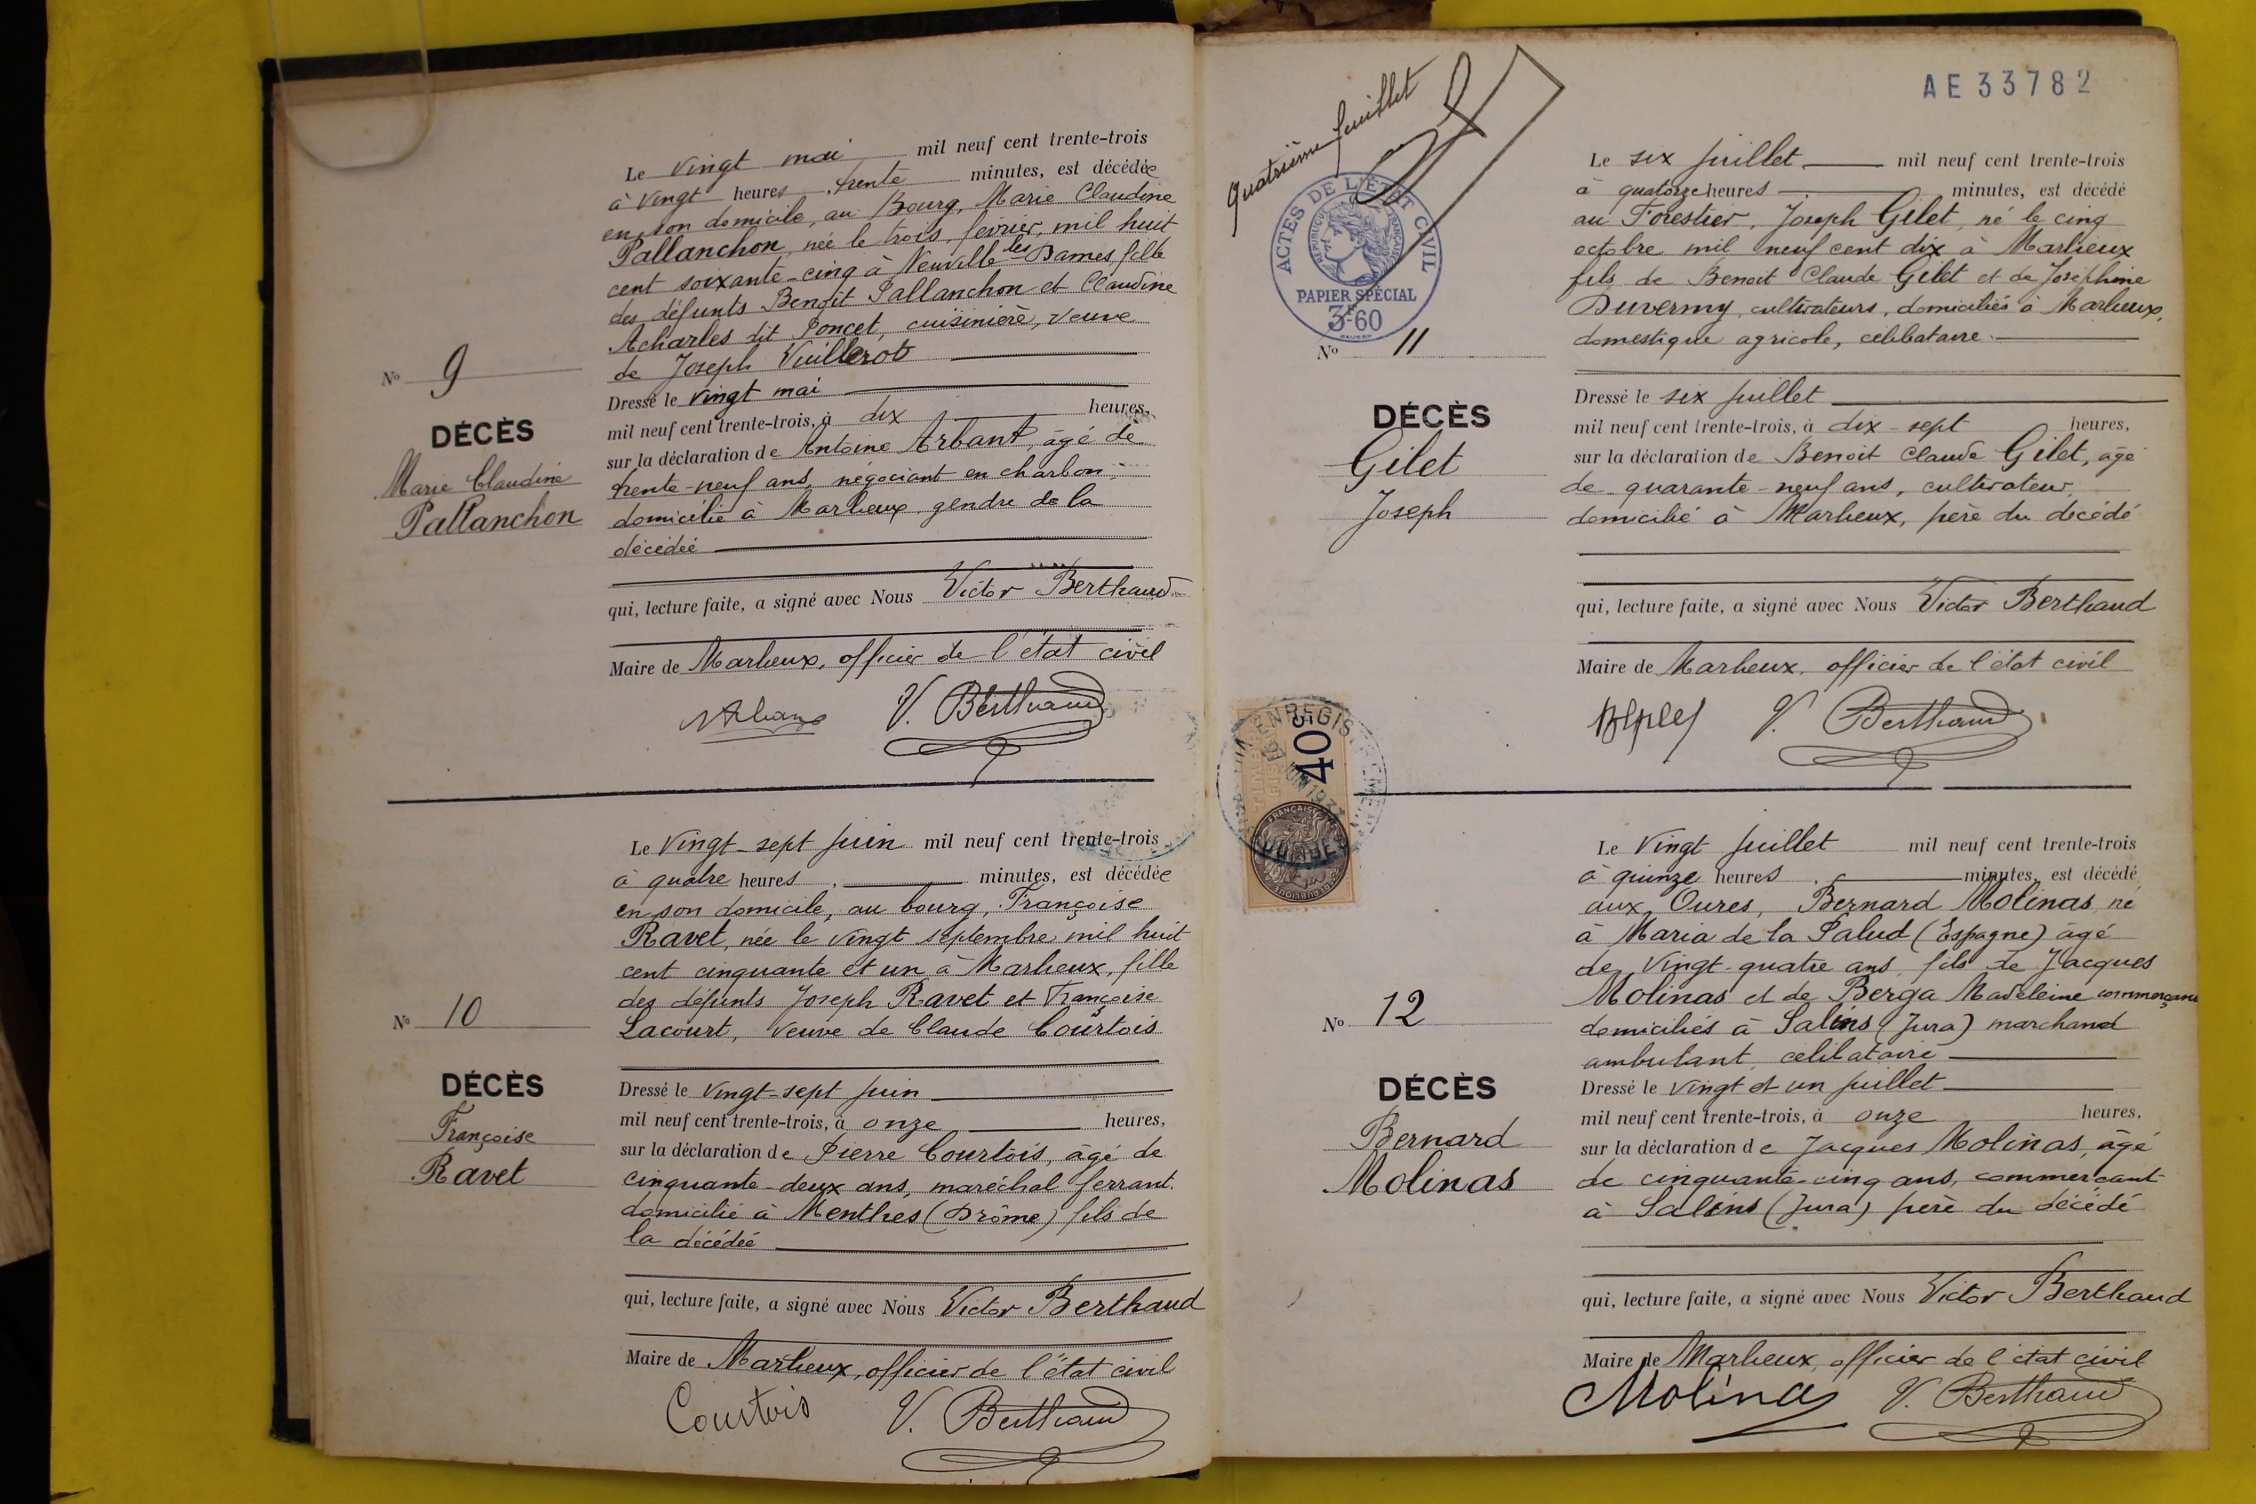 Le vingt mai mil neuf cent trente-trois
à vingt heures, trente minutes, est décédée
en son domicile, au Bourg, Marie Claudine
Pallanchon, née le trois février, mil huit
cent soixante-cinq à Neuville les Dames, fille
des défunts Benoît Pallanchon et Claudine
Acharles dit Poncet, cuisinière, veuve
de Joseph Vuillerot
Nº 9
DÉCÈS
Marie Claudine
Pallanchon
Dressé le vingt mai
mil neuf cent trente-trois, à dix heures,
sur la déclaration de Antoine Arbant, âgé de
trente-neuf ans, négociant en charbon,
domicilié à Marlieux, gendre de la
décédée
qui, lecture faite, a signé avec Nous Victor Berthaud
Maire de Marlieux, officier de l'état civil
V. Berthaud
Le vingt-sept juin mil neuf cent trente-trois
à quatre heures, minutes, est décédée
en son domicile, au bourg, Françoise
Ravet, née le vingt septembre mil huit
cent cinquante et un à Marlieux, fille
des défunts Joseph Ravet et Françoise
Lacourt, veuve de Claude Courtois
Nº 10
DÉCÈS
Françoise
Ravet
Dressé le vingt-sept juin
mil neuf cent trente-trois, à onze heures,
sur la déclaration de Pierre Courtois, âgé de
cinquante-deux ans, maréchal ferrant
domicilié à Menthes (Drôme) fils de
la décédée
qui, lecture faite, a signé avec Nous Victor Berthaud
Maire de Marlieux, officier de l'état civil
Courtois V. Berthaud
Quatrième feuillet
AE 33782
ACTES DE L'ÉTAT CIVIL
RÉPUBLIQUE FRANÇAISE
PAPIER SPÉCIAL
3F60
Le six juillet mil neuf cent trente-trois
à quatorze heures minutes, est décédé
au Forestier, Joseph Gilet, né le cinq
octobre mil neuf cent dix à Marlieux
fils de Benoit Claude Gilet et de Joséphine
Duvermy, cultivateurs, domiciliés à Marlieux,
domestique agricole, célibataire
Nº 11
DÉCÈS
Gilet
Joseph
Dressé le six juillet
mil neuf cent trente-trois, à dix-sept heures,
sur la déclaration de Benoit Claude Gilet, âgé
de quarante-neuf ans, cultivateur,
domicilié à Marlieux, père du décédé
qui, lecture faite, a signé avec Nous Victor Berthaud
Maire de Marlieux, officier de l'état civil
V. Berthaud
405
Le vingt juillet mil neuf cent trente-trois
à quinze heures, minutes, est décédé
aux Oures, Bernard Molinas, né
à Maria de la Salud (Espagne) âgé
de vingt-quatre ans, fils de Jacques
Molinas et de Berga Madeleine commerçants
domiciliés à Salins (Jura) marchand
ambulant, célibataire
Nº 12
DÉCÈS
Bernard
Molinas
Dressé le vingt et un juillet
mil neuf cent trente-trois, à onze heures,
sur la déclaration de Jacques Molinas, âgé
de cinquante-cinq ans, commerçant
à Salins (Jura) père du décédé
qui, lecture faite, a signé avec Nous Victor Berthaud
Maire de Marlieux, officier de l'état civil
Molinas V. Berthaud